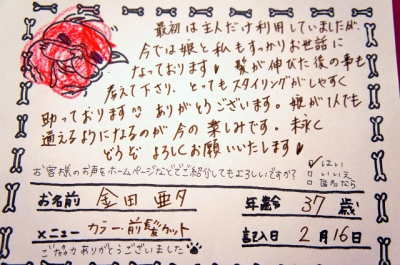 最初は主人だけ利用していましたが、
今では娘と私もすっかりお世話に
なっております♥ 髪が伸びた後の事も
考えて下さり、とってもスタイリングがしやすく
助っております ありがとうございます。娘が1人でも
通えるようになるのが今の楽しみです。末永く
どうぞよろしくお願いいたします♥
お客様のお声をホームページなどでご紹介してもよろしいですか?
はい
いいえ
匿名なら
お名前 金田 亜夕 年齢 37 歳
メニュー カラー・前髪カット 記入日 2月16日
ありがとうございました